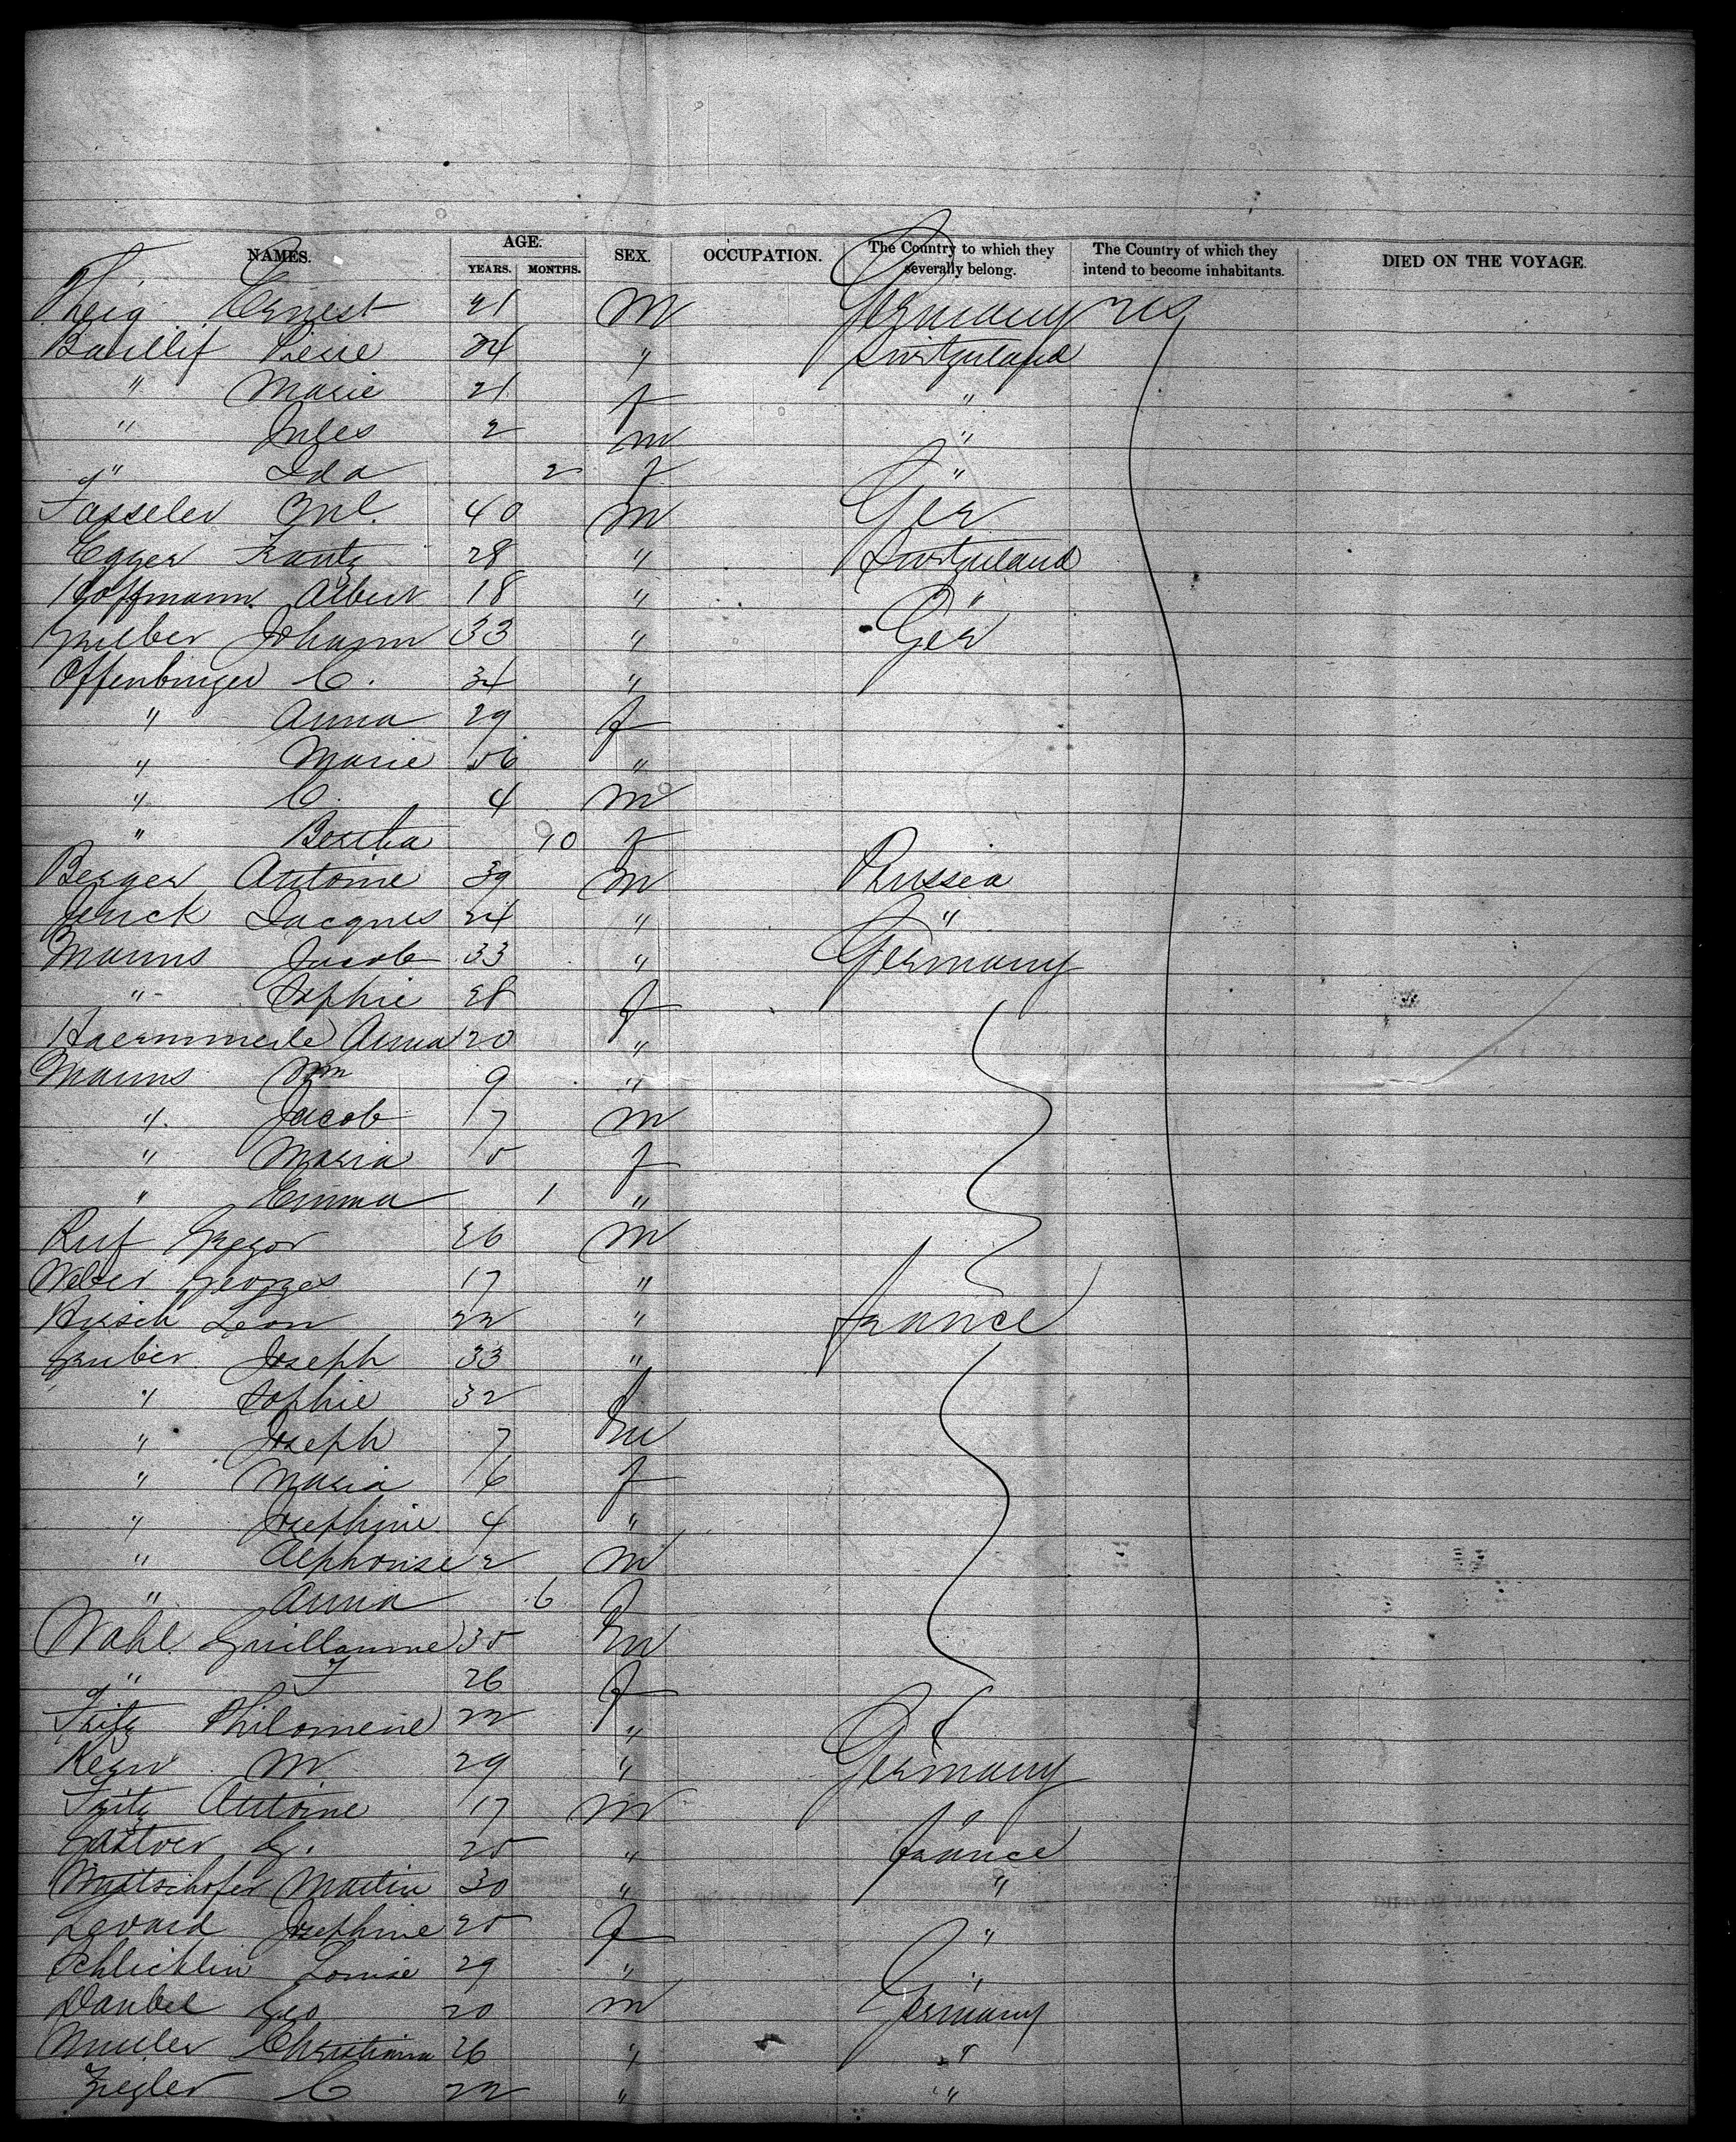 NAMES. AGE. YEARS. MONTHS. SEX. OCCUPATION. The Country to which they severally belong. The Country of which they intend to become inhabitants. DIED ON THE VOYAGE
Ernest 21 M Germany US
Baillif Pierre 24 " Switzerland
" Marie 21 f "
" Jules 2 m "
" Ida 2 f "
Fasseler 40 M Ger
Egger Frantz 28 " Switzerland
Hoffmann Albert 18 " "
Johann 33 " Ger
Offenbinger C. 34 "
" Anna 29 f
" Marie 56 "
" C. 4 m
" Bertha 10 f
Berger Antoine 39 m Prussia
Jacques 24 " "
Manns Jacob 33 " Germany
" Sophie 28 f
Haemmerle Anna 20 "
Manns Wm 9 "
" Jacob 7 m
" Maria 5 f
" Emma 1 "
Ruf Gregor 26 m
Weber Georges 17 "
Hirsch Leon 22 " France
Gruber Joseph 33 "
" Sophie 32 f
" Joseph 7 m
" Maria 6 f
" Josephine 4 "
" Alphonse 2 m
" Anna 6 f
Wahl Guillaume 35 m
" F 26 f
Fritz Philomene 22 "
Kern M 29 " Germany
Fritz Antoine 17 m "
G. 25 " France
Martin 30 " "
Levaid Josephine 25 f "
Schlicklin Louise 29 " "
Daubel Geo 20 m Germany
Muller Christian 26 " "
Ziegler C 22 " "